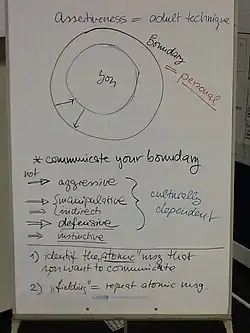 Assertiveness = adult technique
Boundary = personal
You
* communicate your boundary
not
aggressive
manipulative
indirect
defensive
instinctive
culturally dependent
1) identify the "atomic" msg that you want to communicate
2) "fielding" = repeat atomic msg.